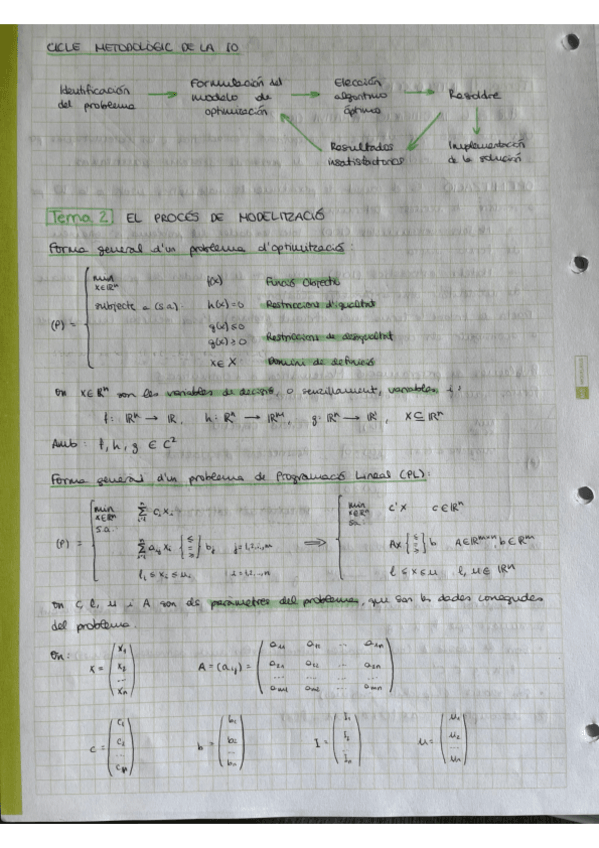 CICLE METODOLÒGIC DE LA IO
Identificación del problema → Formulación del modelo de optimización → Elección algoritmo óptimo → Resoldre
Resultados insatisfactorios
Implementación de la solución
Tema 2 EL PROCÉS DE MODELITZACIÓ
Forma general d'un problema d'optimització:
(P) =
min x∈ℝⁿ f(x) Funció Objectiu
subjecte a (s.a): h(x)=0 Restriccions d'igualtat
g(x)≤0
g(x)≥0 Restriccions de desigualtat
x∈X Domini de definició
On x∈ℝⁿ son les variables de decisió, o senzillament, variables i
f: ℝⁿ → ℝ, h: ℝⁿ → ℝᵐ, g: ℝⁿ → ℝˡ, X⊆ℝⁿ
Amb: f, h, g ∈ C²
Forma general d'un problema de Programació Lineal (PL):
(P) =
min x∈ℝⁿ ∑ⁿᵢ₌₁ cᵢxᵢ ⟹ min x∈ℝⁿ c'x c∈ℝⁿ
s.a: s.a:
∑ⁿᵢ₌₁ aᵢⱼxᵢ {≤ = ≥} bⱼ j=1,2,...,m Ax {≤ = ≥} b A∈ℝᵐˣⁿ, b∈ℝᵐ
lᵢ≤xᵢ≤uᵢ i=1,2,...,n l≤x≤u l,u∈ℝⁿ
On c, l, u i A són els paràmetres del problema, que són les dades conegudes
del problema.
On:
x = (x₁ x₂ ... xₙ) A = (aᵢⱼ) = (a₁₁ a₁₂ ... a₂ₙ
a₂ₙ a₂₂ ... a₂ₙ
... ... ... ...
aₘ₁ aₘ₂ ... aₘₙ)
c = (c₁ c₂ ... cₙ) b = (b₁ b₂ ... bₙ) I = (I₁ I₂ ... Iₙ) u = (u₁ u₂ ... uₙ)